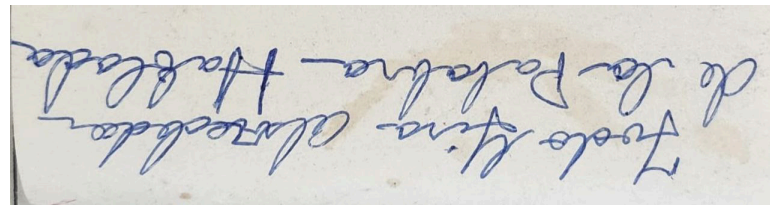 Todo gira alrededor
de la Palabra Hablada